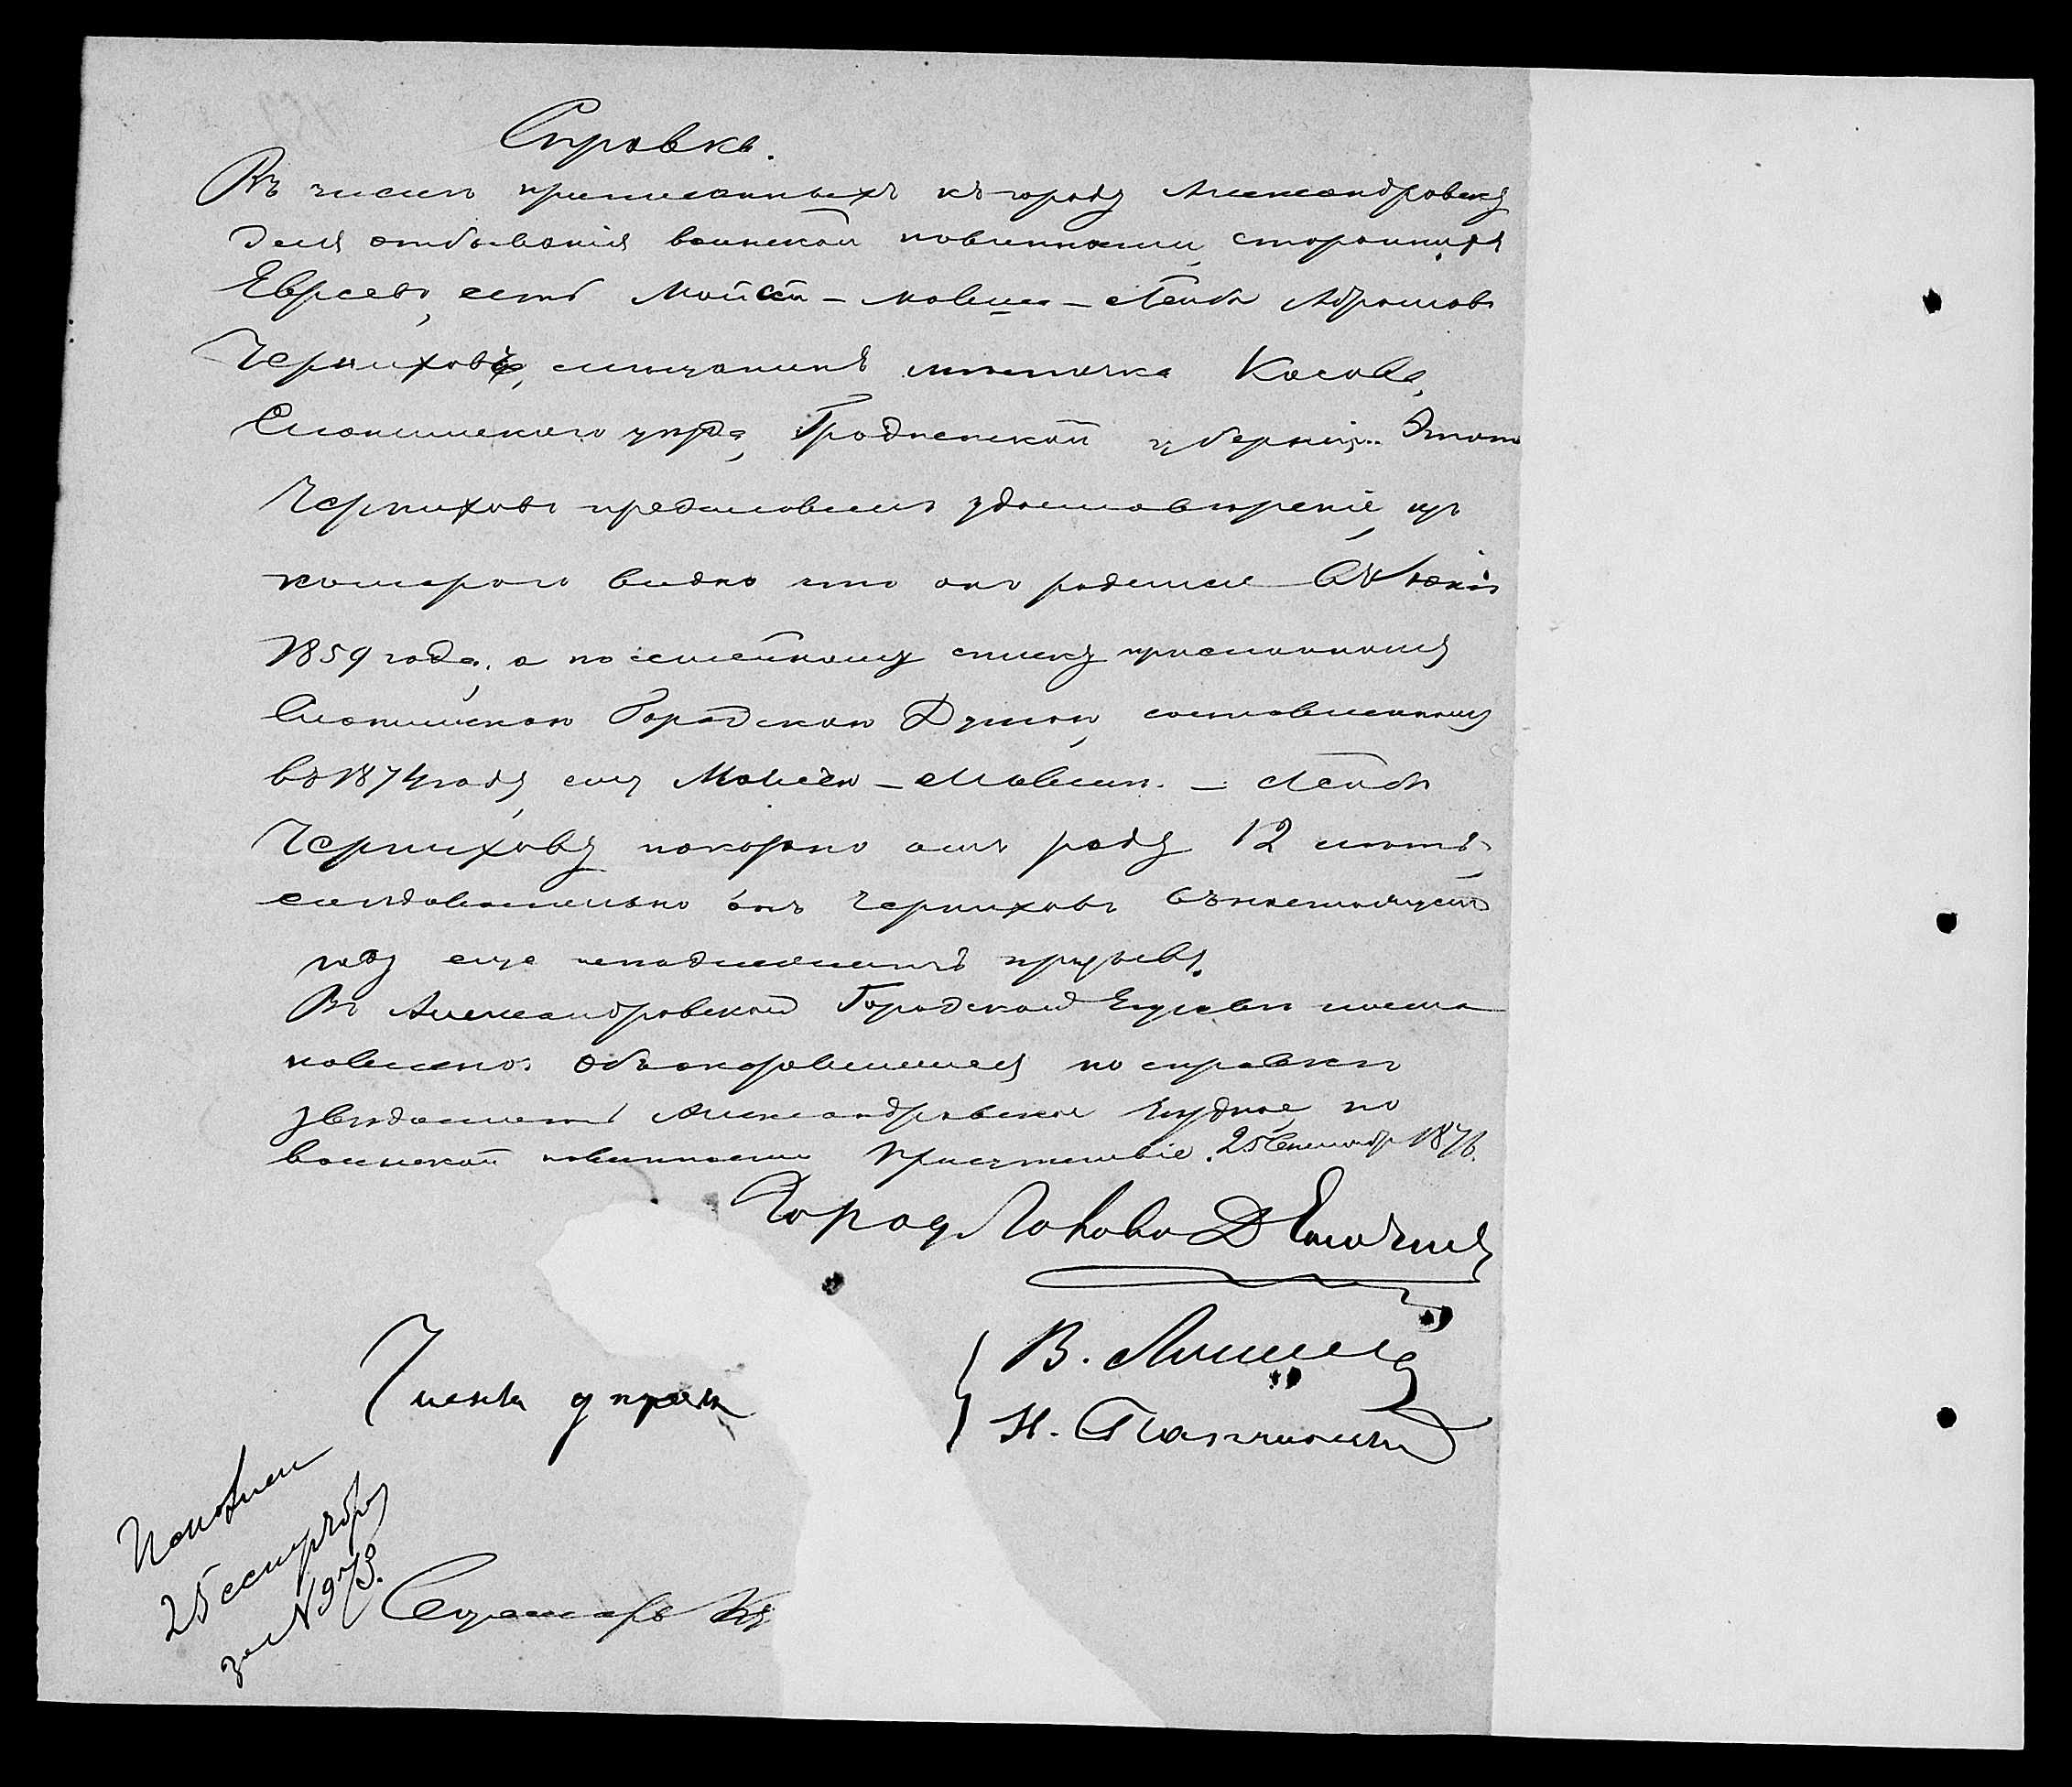 Справка.
Въ числѣ приписанныхъ къ городу Александровску
для отбыванія воинской повинности, стороннихъ
Евреевъ, есть Мойсѣй - Мовша - Лейба Абрамовъ
Черниховъ, мѣщанинъ мѣстечка Косова,
Слонимскаго уѣзда, Гродненской губерніи. Этотъ
Черниховъ представилъ удостовѣреніе, изъ
котораго видно что онъ родился въ
1859 года, а по семейному списку присланному
Слонимской Городской Думой, составленному
въ 1874 году, ему - Мовшѣ - Лейбѣ
Чернихову показано отъ роду 12 лѣтъ,
слѣдовательно онъ Черниховъ въ настоящемъ
году еще неподлежитъ призыву.
Въ Александровской Городской Управѣ поста
новлено: Объ оказавшемся по справкѣ
увѣдомить Александровское Уѣздное по
воинской повинности Присутствіе. 25 Сентября 1876.
Город Голова Д
Члены управы
В.
Н.
Исполнен
25 сентября
за № 1973.
Секретарь